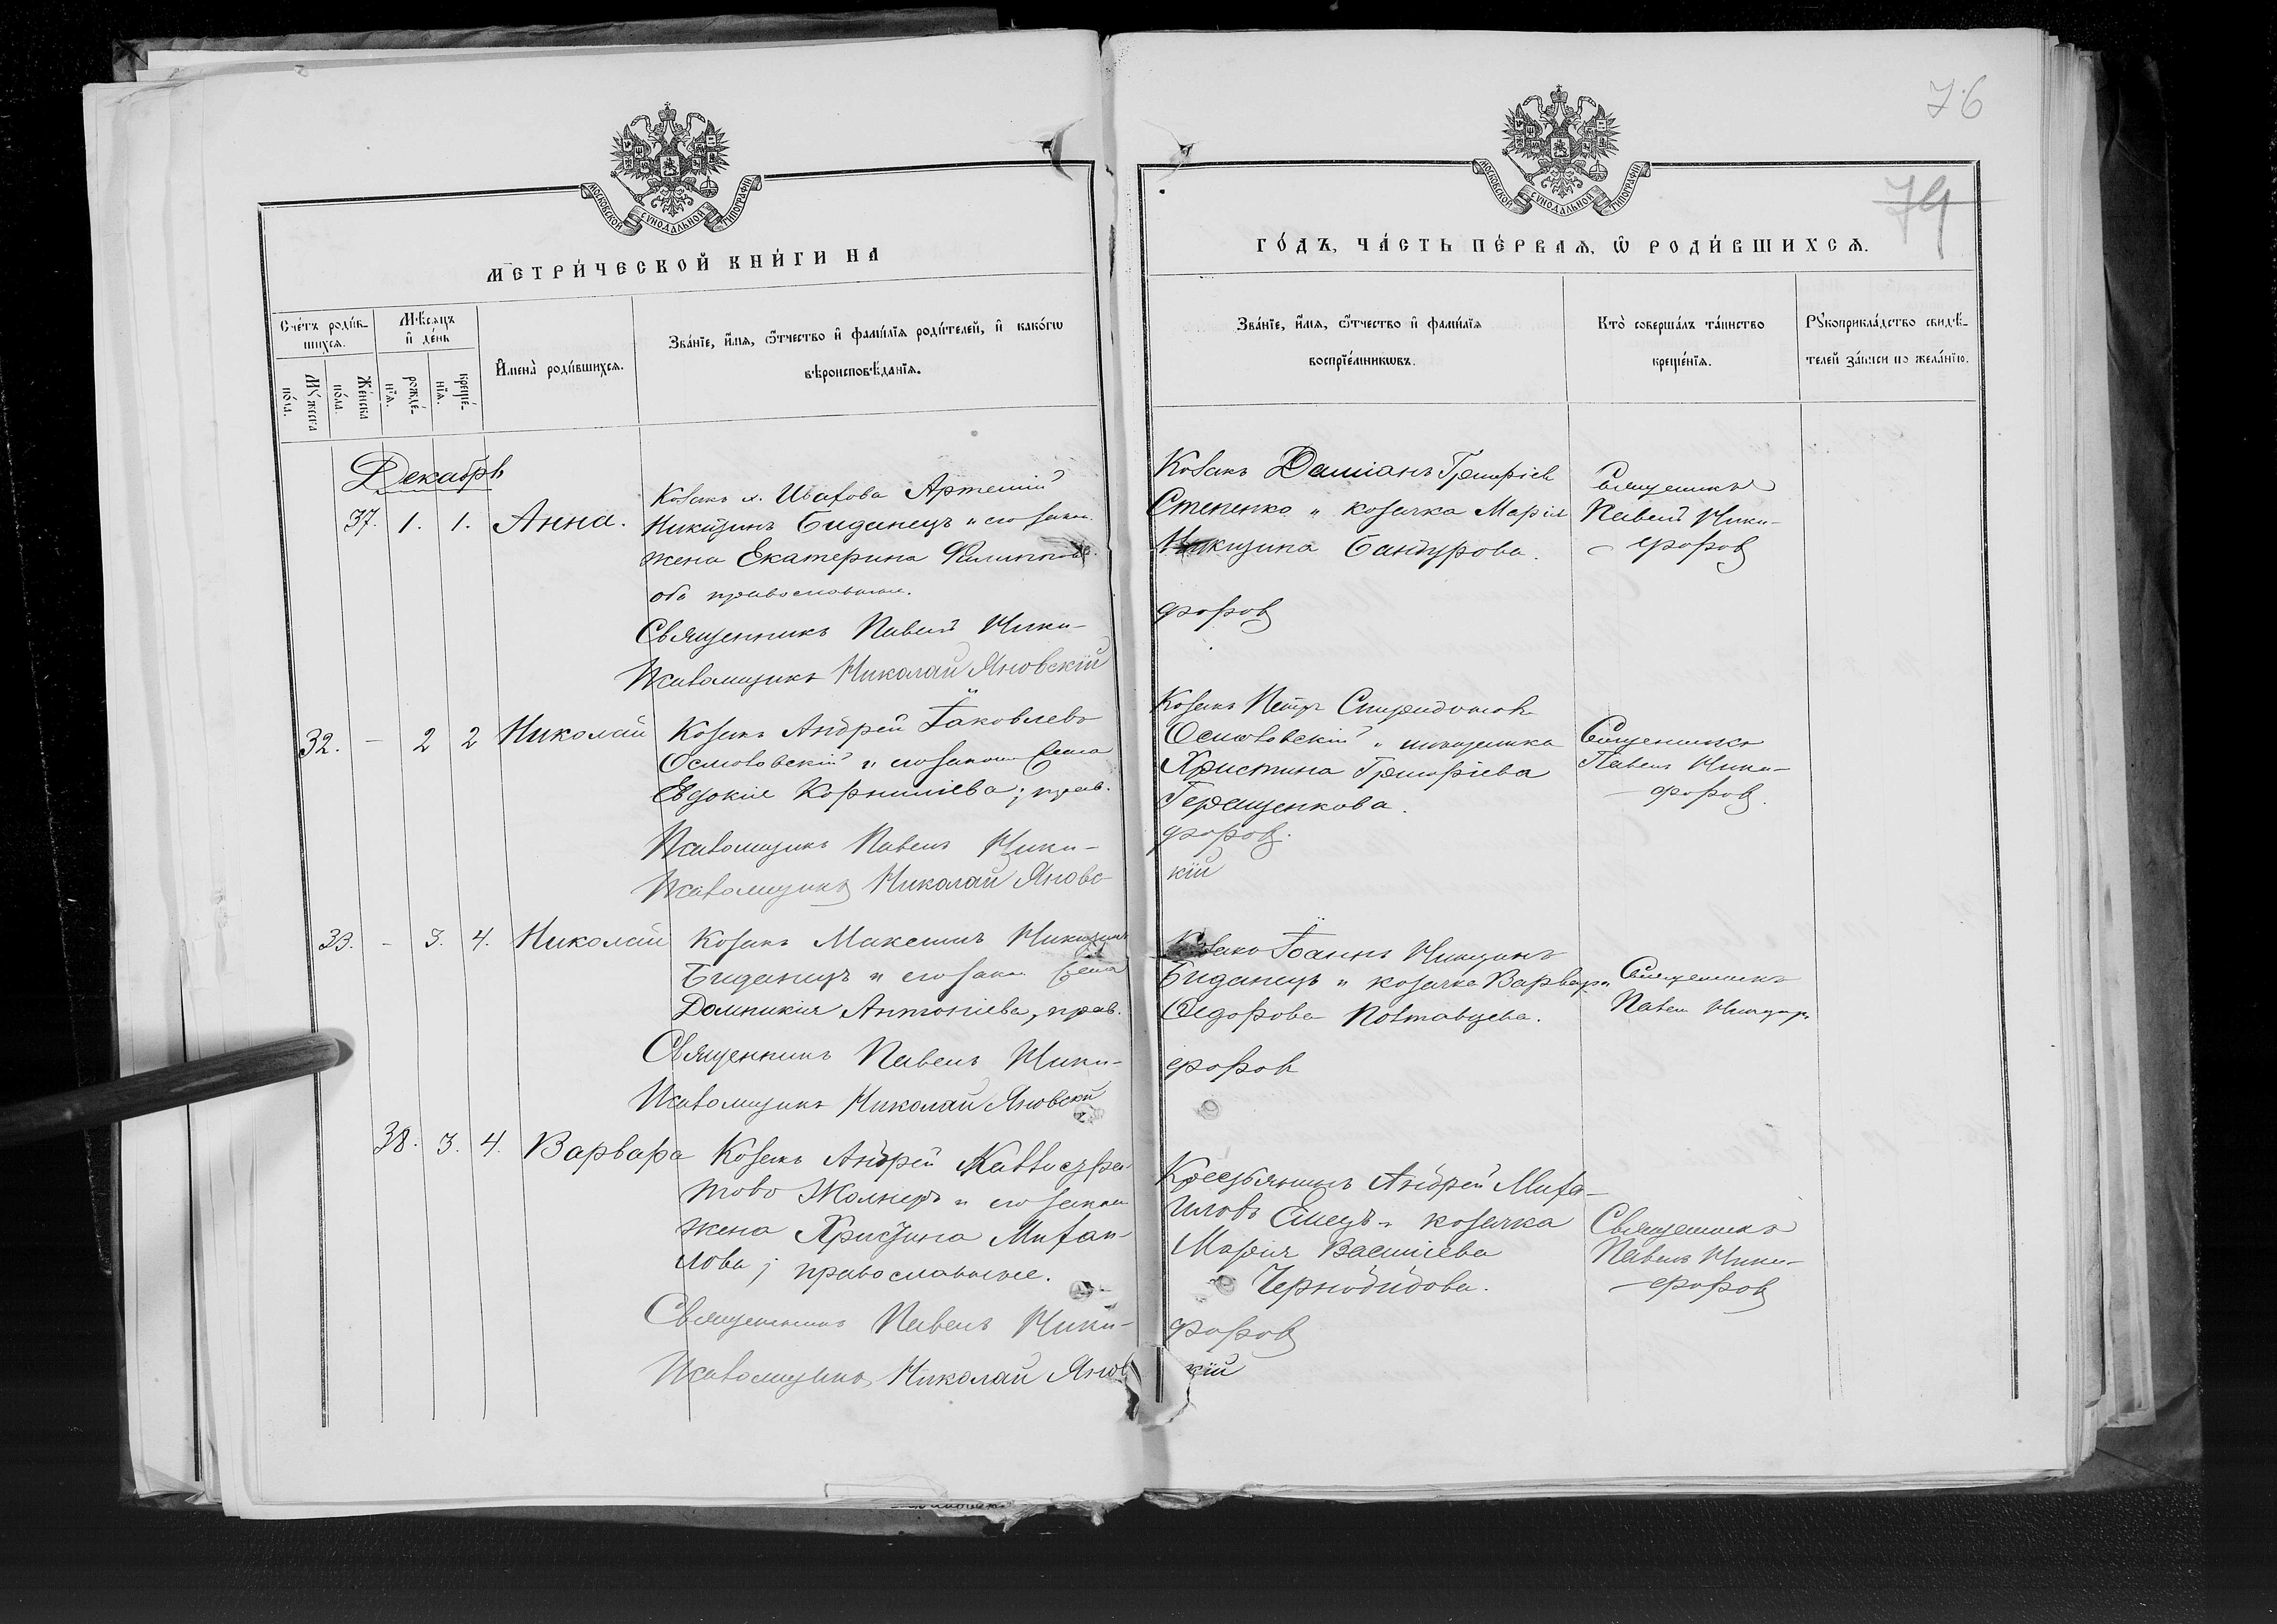 76
79
МОСКОВСКОЙ СѴНОДАЛЬНОЙ ТИПОГРАФІИ
МОСКОВСКОЙ СѴНОДАЛЬНОЙ ТИПОГРАФІИ
МЕТРИ́ЧЕСКОЙ КНИ́ГИ НА
ГО́ДЪ, ЧА́СТЬ ПЕ́РВАѦ, Ѡ РОДИ́ВШИХСѦ.
Сче́тъ роди́в-
шихсѧ.
Мꙋжеска
по́ла.
Же́нска
по́ла.
Мѣ́сѧцъ
и҆ де́нь
рожде́-
нїѧ.
креще́-
нїѧ.
И҆мена̀ роди́вшихсѧ.
Зва́нїе, и҆́мѧ, ѻ҆́тчество и҆ фами́лїѧ роди́телей, и҆ како́гѡ
вѣроисповѣ́данїѧ.
Зва́нїе, и҆́мѧ, ѻ҆́тчество и҆ фами́лїѧ
воспрїе́мникѡвъ.
Кто̀ соверша́лъ та́инство
креще́нїѧ.
Рꙋкоприкла́дство свидѣ́-
телей за́писи по жела́нїю.
Декабрь
37. 1. 1. Анна.
Козакъ х. Ивахова Артемій
Никитинъ Биданецъ и законн.
жена Екатерина Филиппова
оба православные.
Священникъ Павелъ Ники-
Псаломщикъ Николай Яновскій
Козакъ Даміанъ Григоріев
Степенко и козачка Марія
Никитина Бандурова.
форовъ
Священникъ
Павелъ Ники-
форовъ
32. - 2 2 Николай
Козакъ Андрей Іаковлевъ
Осмоловскій и законн. жена
Евдокія Корниліева; прав.
Псаломщикъ Павелъ Ники-
Псаломщикъ Николай Яновс
Козакъ Петръ Спиридонов
Осмоловскій и
Христина Григоріева
Геращенкова.
форовъ.
кій
Священникъ
Павелъ Ники-
форовъ.
33. - 3. 4. Николай
Козакъ Максимъ Никитинъ
Биданецъ и законн. жена
Домникія Антоніева, прав.
Священникъ Павелъ Ники-
Псаломщикъ Николай Яновскій
Козакъ Іоаннъ Никитинъ
Биданецъ и козачка Варвара
Ѳедорова Полтавцева.
форовъ
Священникъ
Павелъ Никифор.
38. 3. 4. Варвара
Козакъ Андрей
Жолнеръ и законн.
жена Христина Михаи-
лова; православные.
Священникъ Павелъ Ники-
Псаломщикъ Николай Яновс
Крестьянинъ Андрей Миха-
иловъ Емецъ и козачка
Марія Василіева
Чернодидова.
форовъ
кій
Священникъ
Павелъ Ники-
форовъ